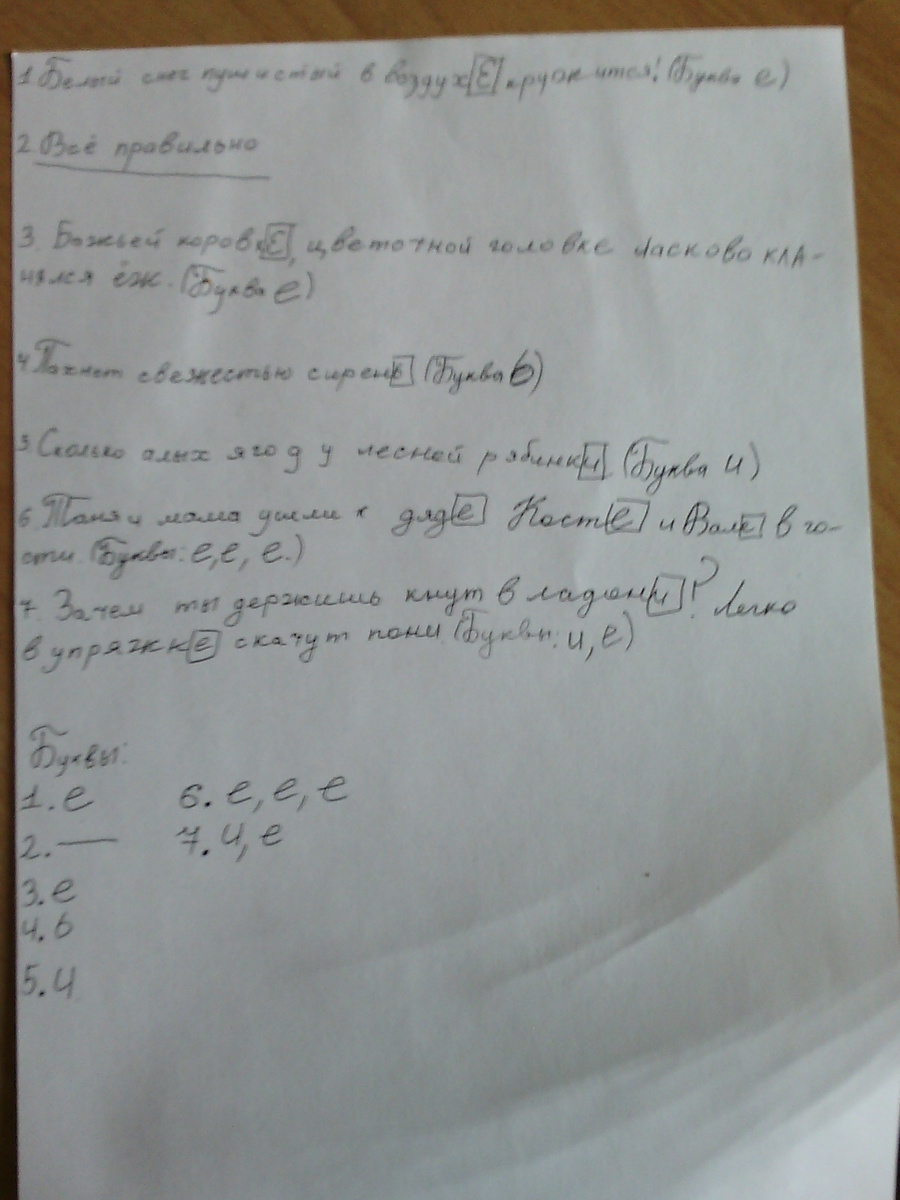 1. Белый снег пушистый в воздухе кружится! (Буква е)
2. Всё правильно
3. Божьей коровке, цветочной головке ласково кла-
нялся ёж. (Буква е)
4. Пахнет свежестью сирень (Буква ь)
5. Сколько алых ягод у лесной рябинки (Буква и)
6. Таня и мама ушли к дяде Косте и Вале в го-
сти. (Буквы: е, е, е.)
7. Зачем ты держишь кнут в ладони? Легко
в упряжке скачут пони. (Буквы: и, е)
Буквы:
1. е 6. е, е, е
2. — 7. и, е
3. е
4. ь
5. и